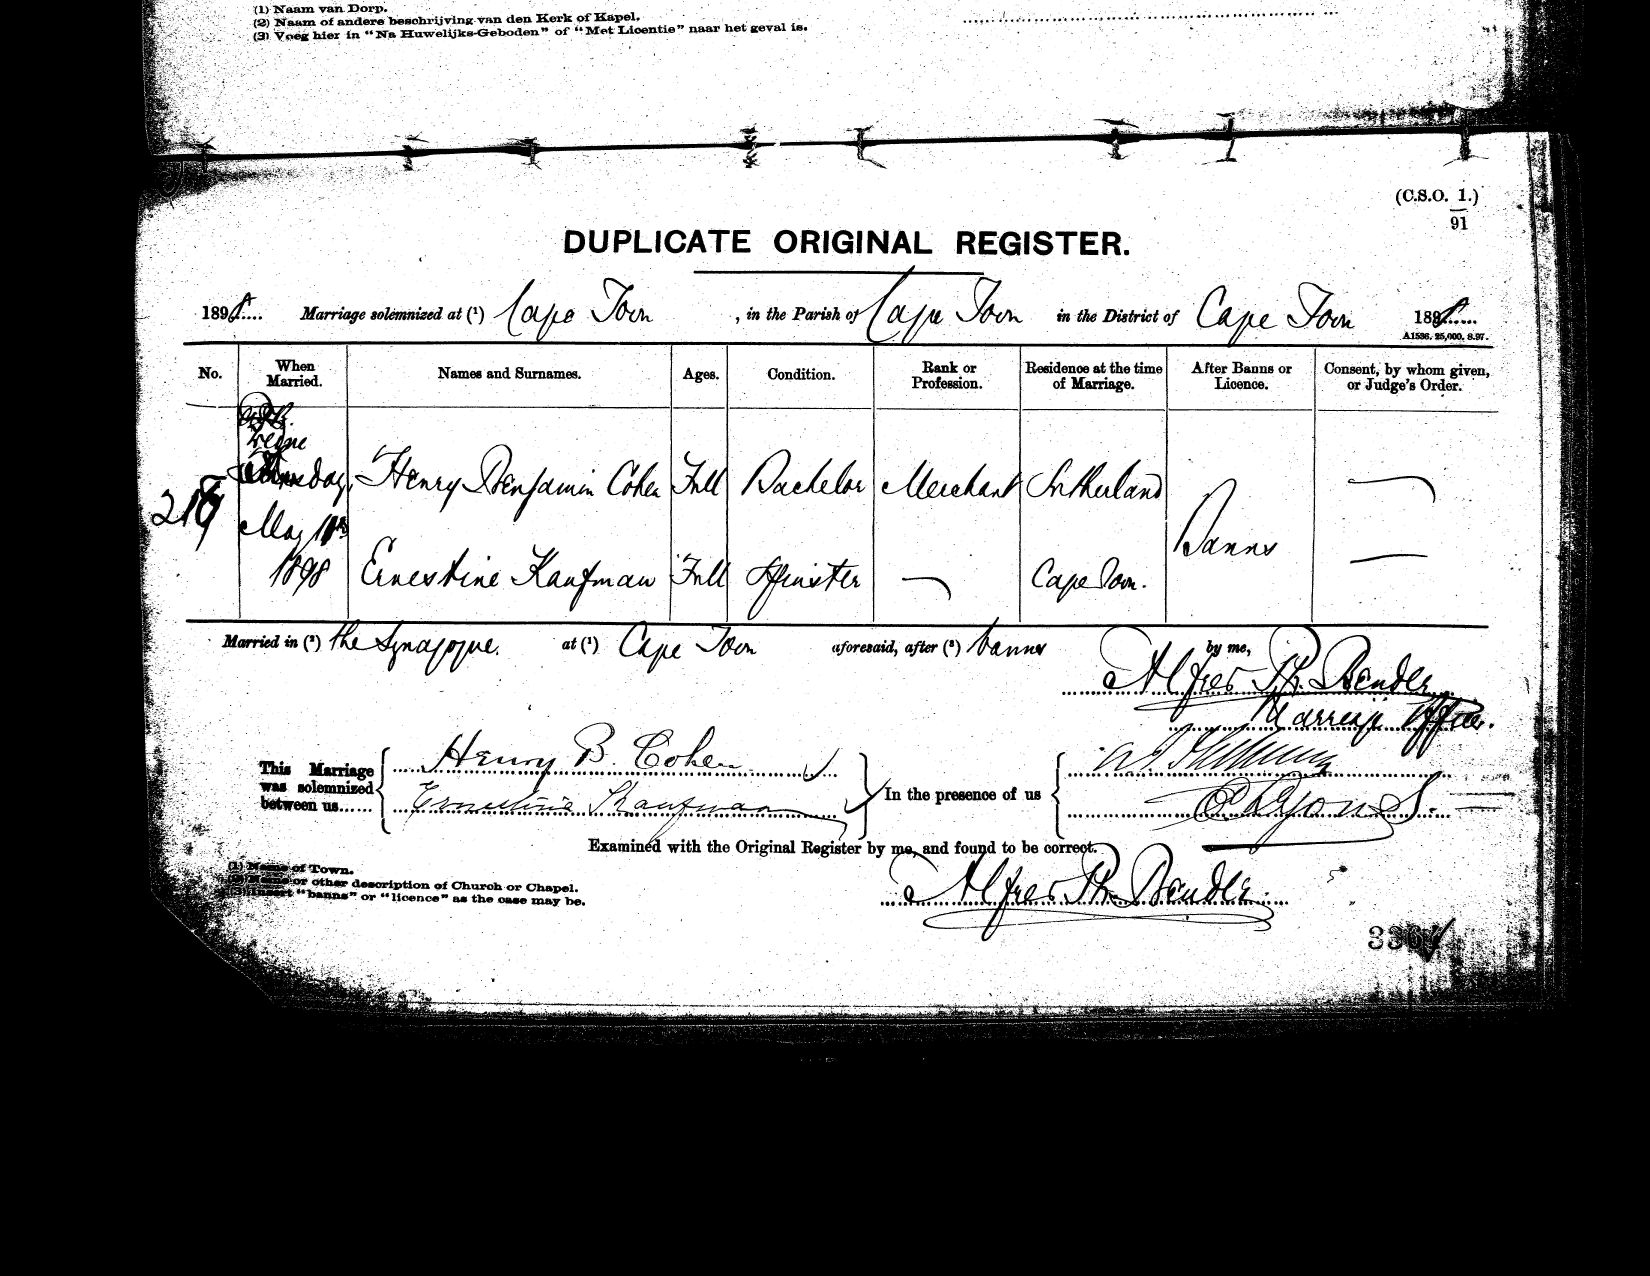 (1) Naam van Dorp.
(2) Naam of andere beschrijving van den Kerk of Kapel.
(3) Voeg hier in "Na Huwelijks-Geboden" of "Met Licentie" naar het geval is.
(C.S.O. 1.)
91
DUPLICATE ORIGINAL REGISTER.
1898.... Marriage solemnized at (1) Cape Town , in the Parish of Cape Town in the District of Cape Town 1898.....
A1586. 25,000. 8.97.
No. When Married. Names and Surnames. Ages. Condition. Rank or Profession. Residence at the time of Marriage. After Banns or Licence. Consent, by whom given, or Judge's Order.
Henry Benjamin Cohen Full Bachelor Merchant Sutherland
May
Banns
1898 Ernestine Kaufman Full Spinster Cape Town.
Married in (2) the Synagogue. at (1) Cape Town aforesaid, after (3) banns by me,
Alfred Ph. Bender
Marriage Officer.
This Marriage was solemnized between us...... Henry B. Cohen
Ernestine Kaufman
In the presence of us
Examined with the Original Register by me, and found to be correct.
Alfred Ph. Bender.
(1) Name of Town.
(2) Name or other description of Church or Chapel.
(3) Insert "banns" or "licence" as the case may be.